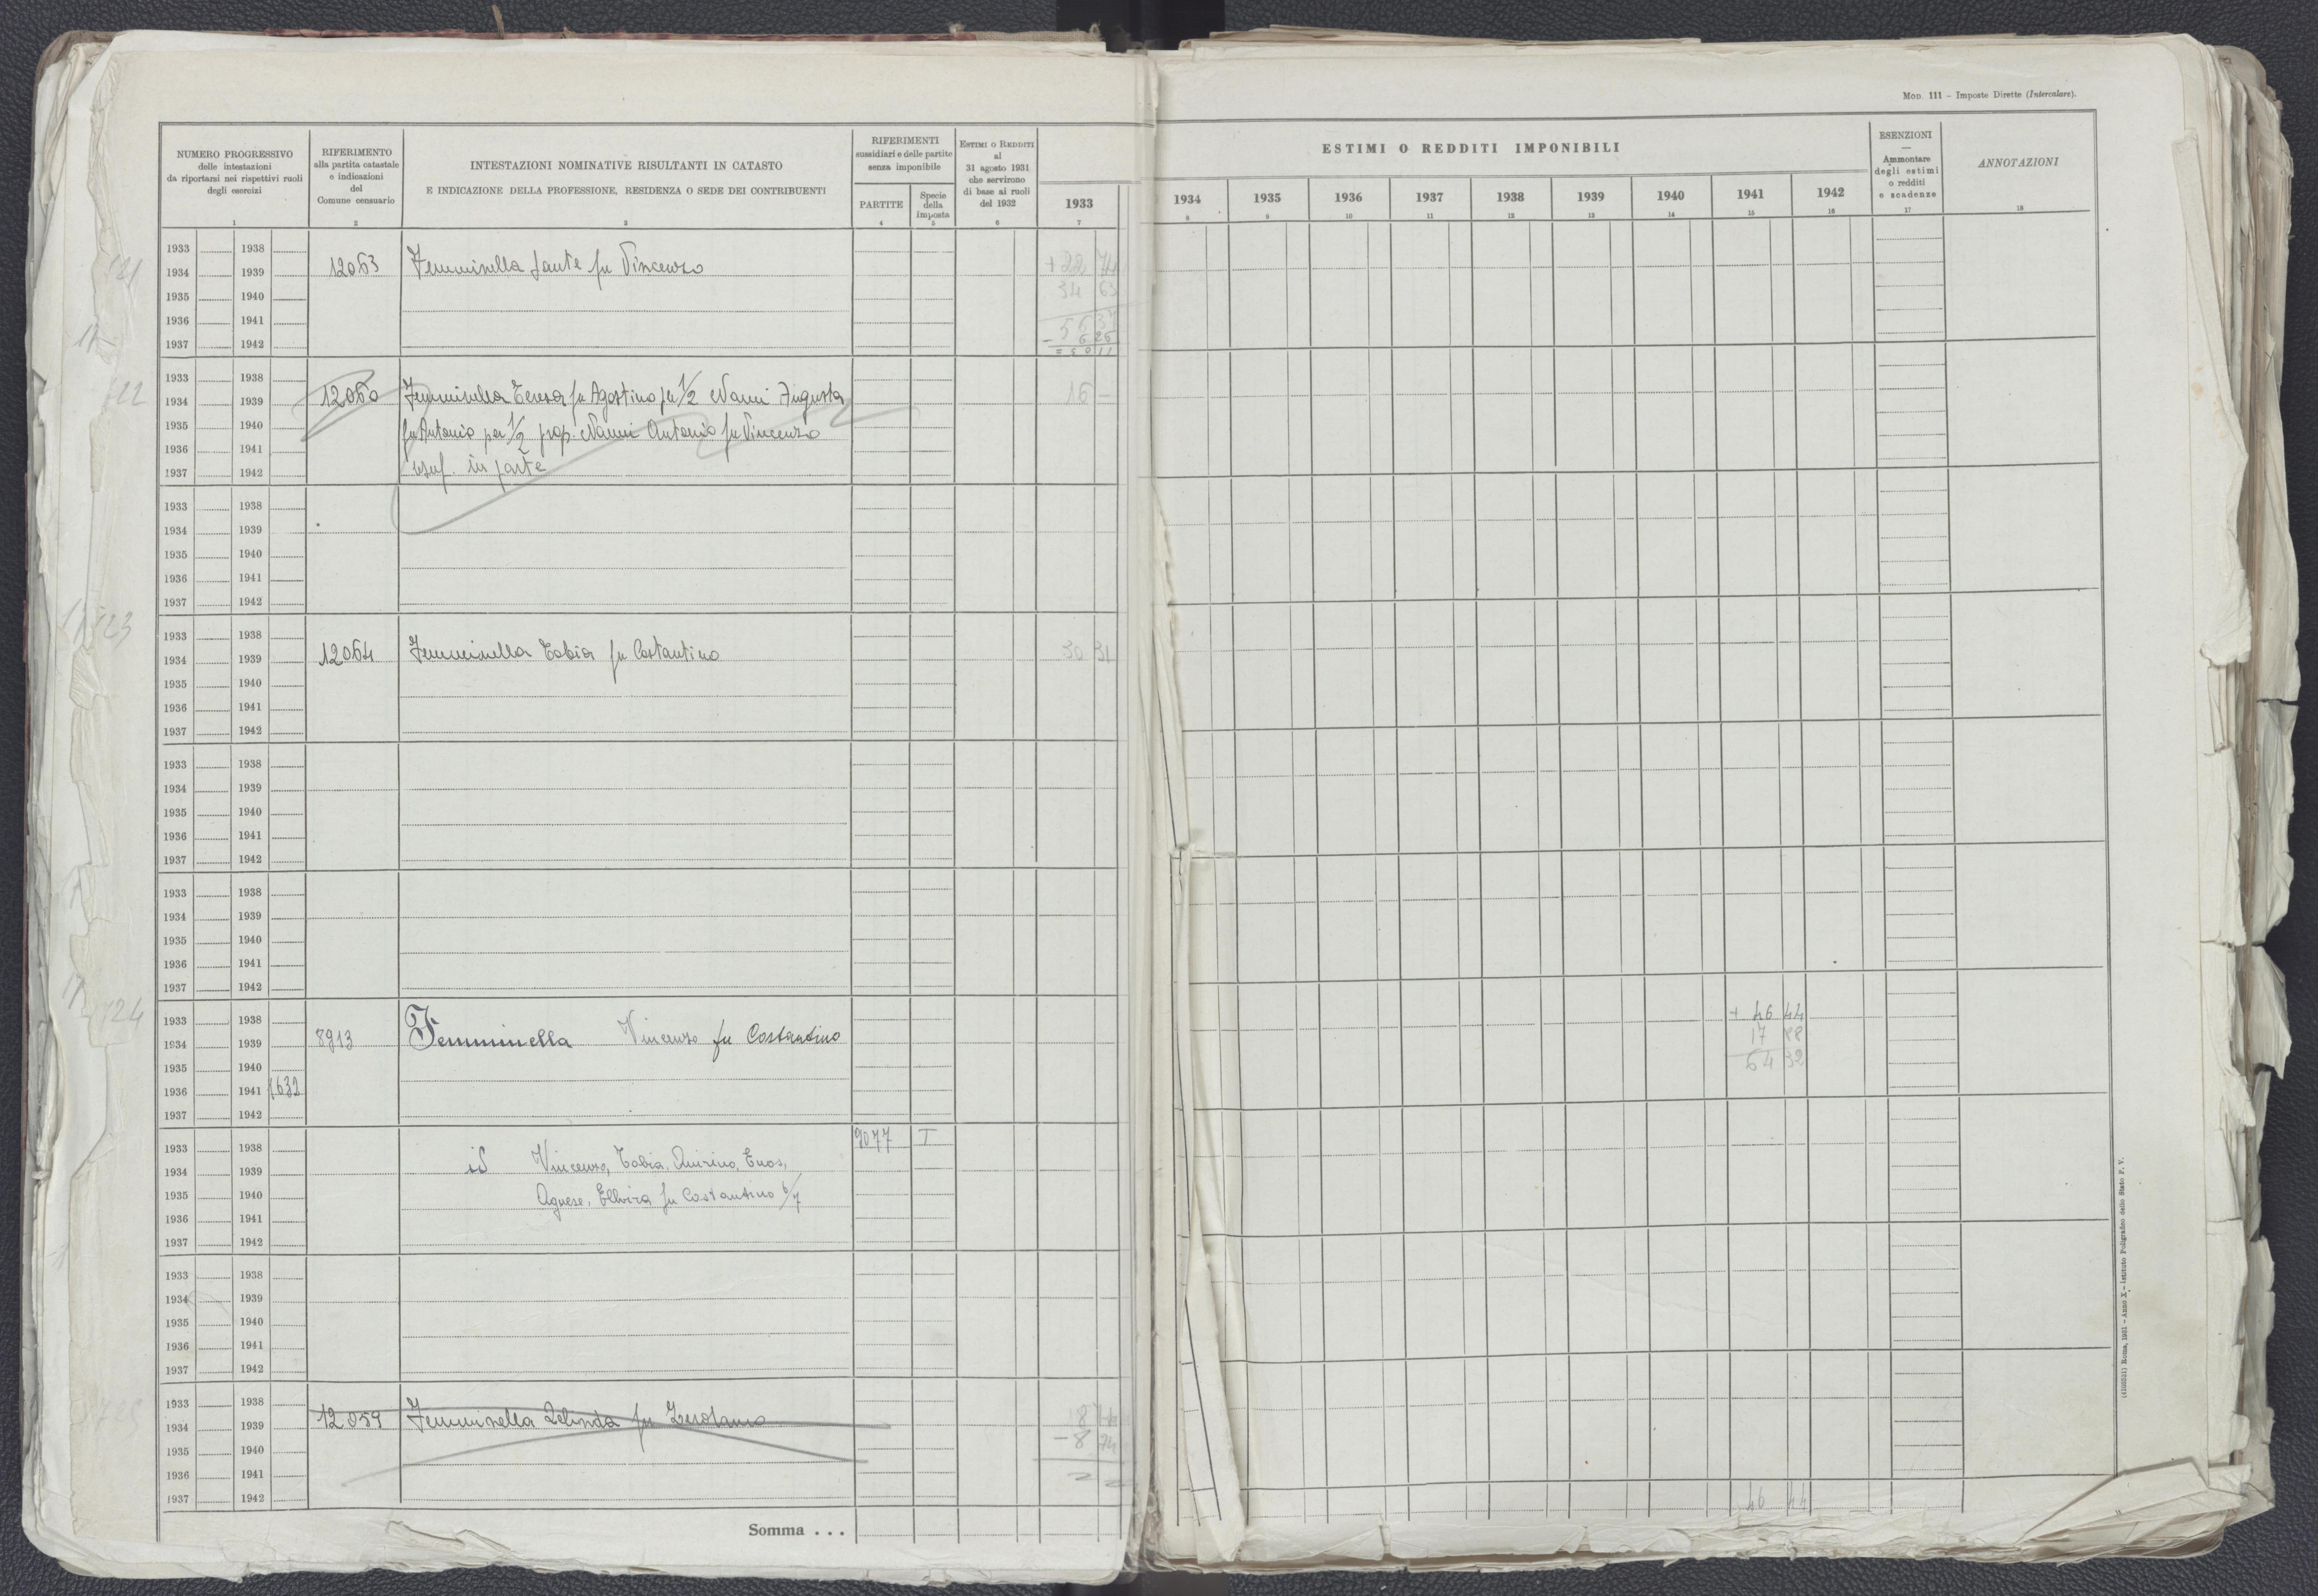 Mod. 111 – Imposte Dirette (Intercalare).
NUMERO PROGRESSIVO
delle intestazioni
da riportarsi nei rispettivi ruoli
degli esercizi
1
RIFERIMENTO
alla partita catastale
e indicazioni
del
Comune censuario
2
INTESTAZIONI NOMINATIVE RISULTANTI IN CATASTO
E INDICAZIONE DELLA PROFESSIONE, RESIDENZA O SEDE DEI CONTRIBUENTI
3
RIFERIMENTI
sussidiari e delle partite
senza imponibile
PARTITE
4
Specie
della
imposta
5
Estimi o Redditi
al
31 agosto 1931
che servirono
di base ai ruoli
del 1932
6
ESTIMI O REDDITI IMPONIBILI
1933 1934 1935 1936 1937 1938 1939 1940 1941 1942
7 8 9 10 11 12 13 14 15 16
ESENZIONI
—
Ammontare
degli estimi
o redditi
e scadenze
17
ANNOTAZIONI
18
1933 1938
1934 1939 12063 Femminella Sante fu Vincenzo + 22 74
1935 1940 34 63
1936 1941 56 37
1937 1942 - 6 26
= 50 11
1933 1938
1934 1939 12060 Femminella Teresa fu Agostino per 1/2 e Nanni Augusta 16 -
1935 1940 fu Antonio per 1/2 prop. Nanni Antonio fu Vincenzo
1936 1941
1937 1942 usuf. in parte
1933 1938
1934 1939
1935 1940
1936 1941
1937 1942
1933 1938
1934 1939 12064 Femminella Tobia fu Costantino 30 31
1935 1940
1936 1941
1937 1942
1933 1938
1934 1939
1935 1940
1936 1941
1937 1942
1933 1938
1934 1939
1935 1940
1936 1941
1937 1942
1933 1938 + 46 44
1934 1939 8913 Femminella Vincenzo fu Costantino 17 88
1935 1940 64 32
1936 1941 1632
1937 1942
1933 1938 9077 T
1934 1939 id Vincenzo, Tobia, Quirino, Enos,
1935 1940 Agnese, Ellvira fu Costantino 6/7
1936 1941
1937 1942
1933 1938
1934 1939
1935 1940
1936 1941
1937 1942
1933 1938
1934 1939 12059 Femminella Zelinda fu Gerolamo 8 74
1935 1940 - 8 74
1936 1941
1937 1942 46 44
Somma . . .
(4103531) Roma, 1931 – Anno X – Istituto Poligrafico dello Stato P. V.